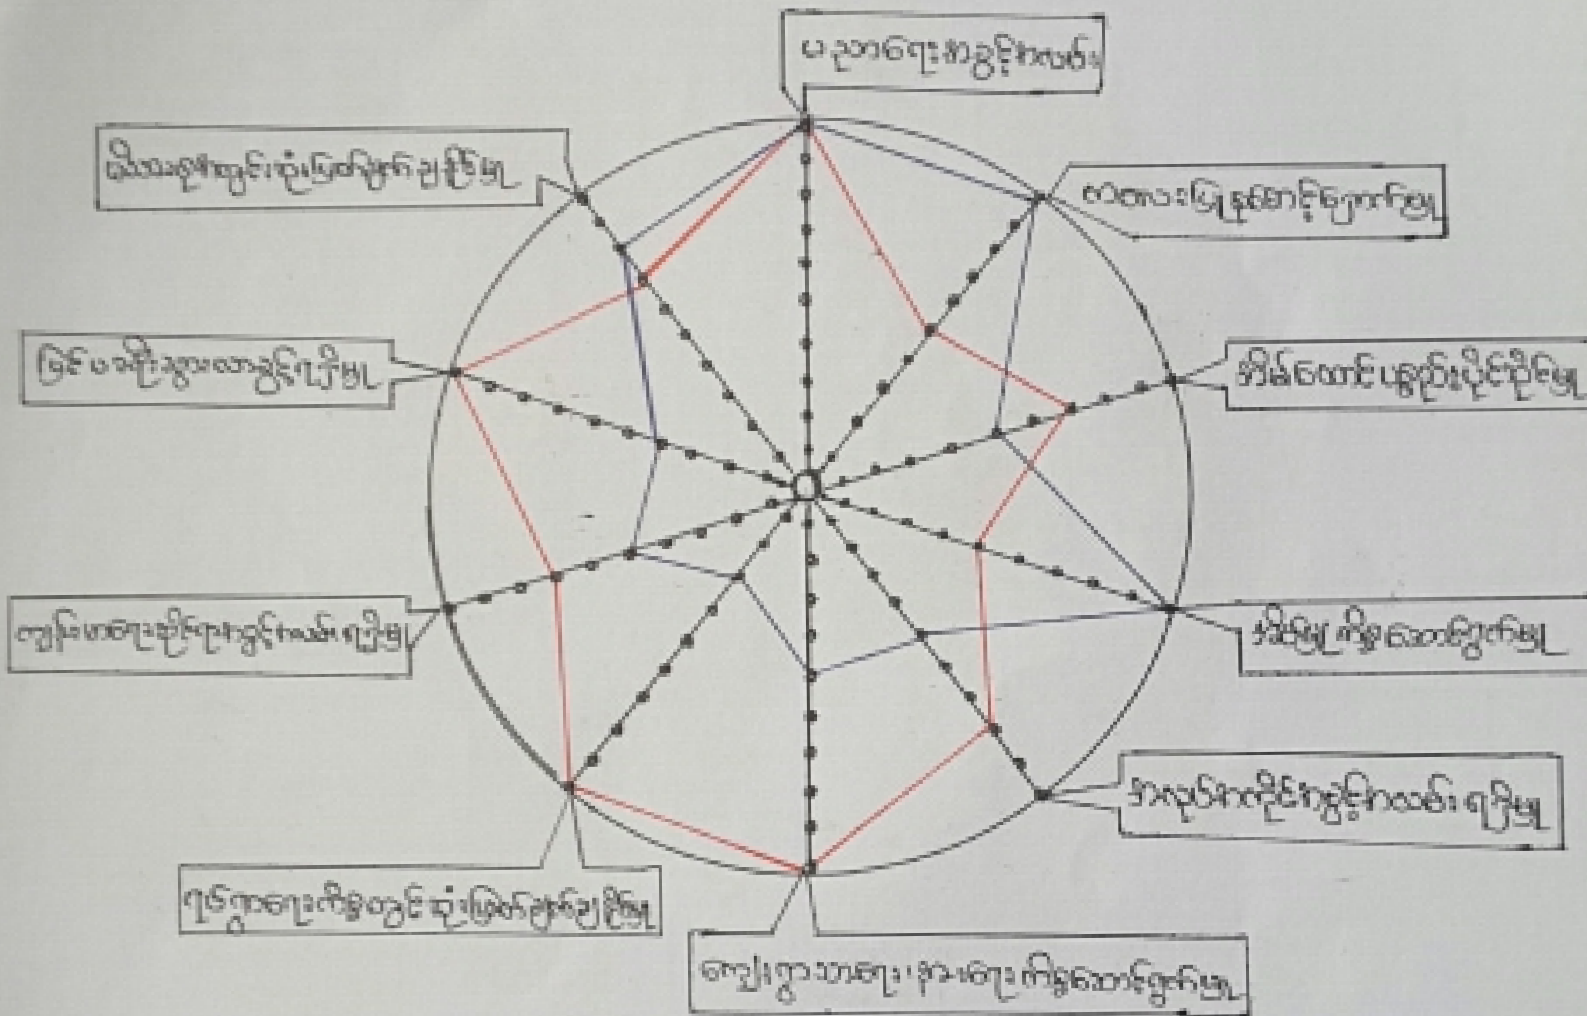 ပညာရေးအခွင့်အလမ်း
ကလေးပြုစုစောင့်ရှောက်မှု
အိမ်ထောင်ပစ္စည်းပိုင်ဆိုင်မှု
အိမ်မှုကိစ္စဆောင်ရွက်မှု
အလုပ်အကိုင်အခွင့်အလမ်းရရှိမှု
ကျေးရွာသာရေး၊နာရေးကိစ္စဆောင်ရွက်မှု
ရပ်ရွာရေးကိစ္စတွင်ဆုံးဖြတ်ချက်ချနိုင်မှု
ကျန်းမာရေးဆိုင်ရာအခွင့်အလမ်းရရှိမှု
ပြင်ပခရီးသွားလာခွင့်ရရှိမှု
မိသားစုတွင်းဆုံးဖြတ်ချက်ချနိုင်မှု